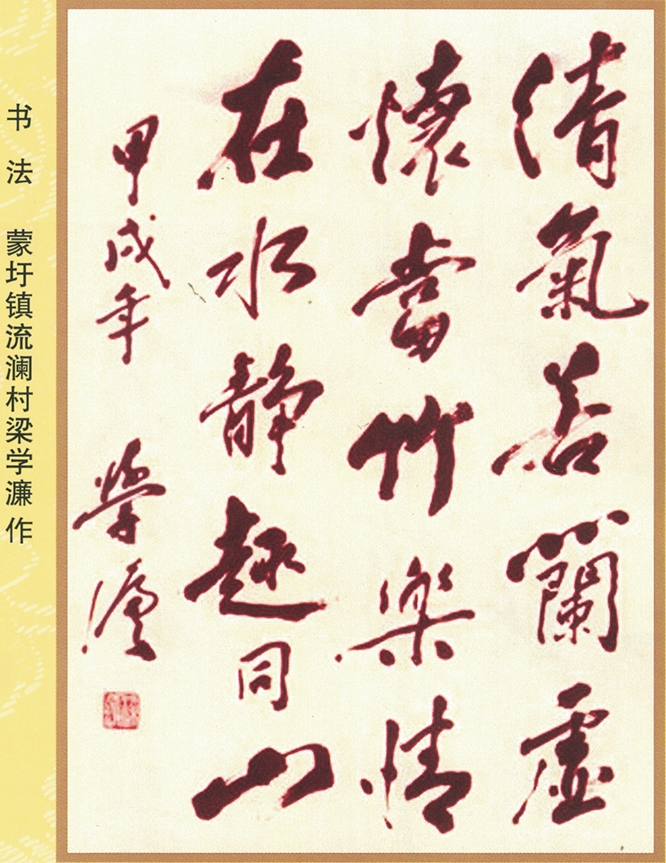 清氣若蘭虛
懷當竹樂情
在水靜趣同山
甲戌年 學濂
书法 蒙圩镇流澜村梁学濂作